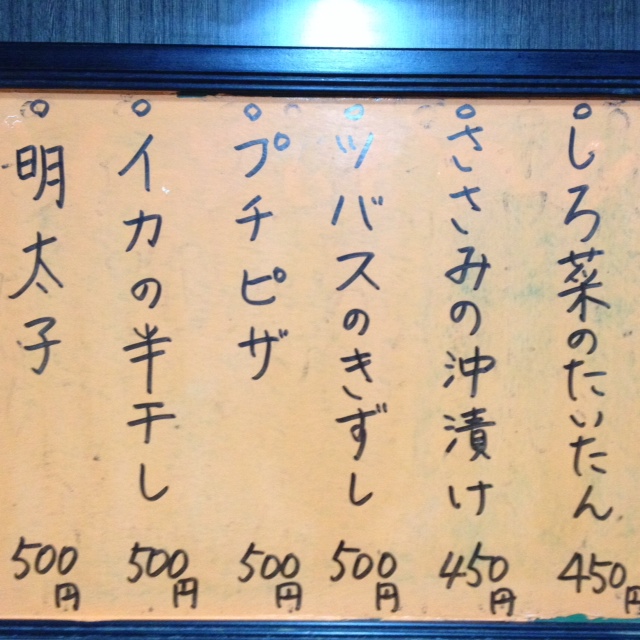 ○しろ菜のたいたん 450円
○ささみの沖漬け 450円
○ツバスのきずし 500円
○プチピザ 500円
○イカの半干し 500円
○明太子 500円